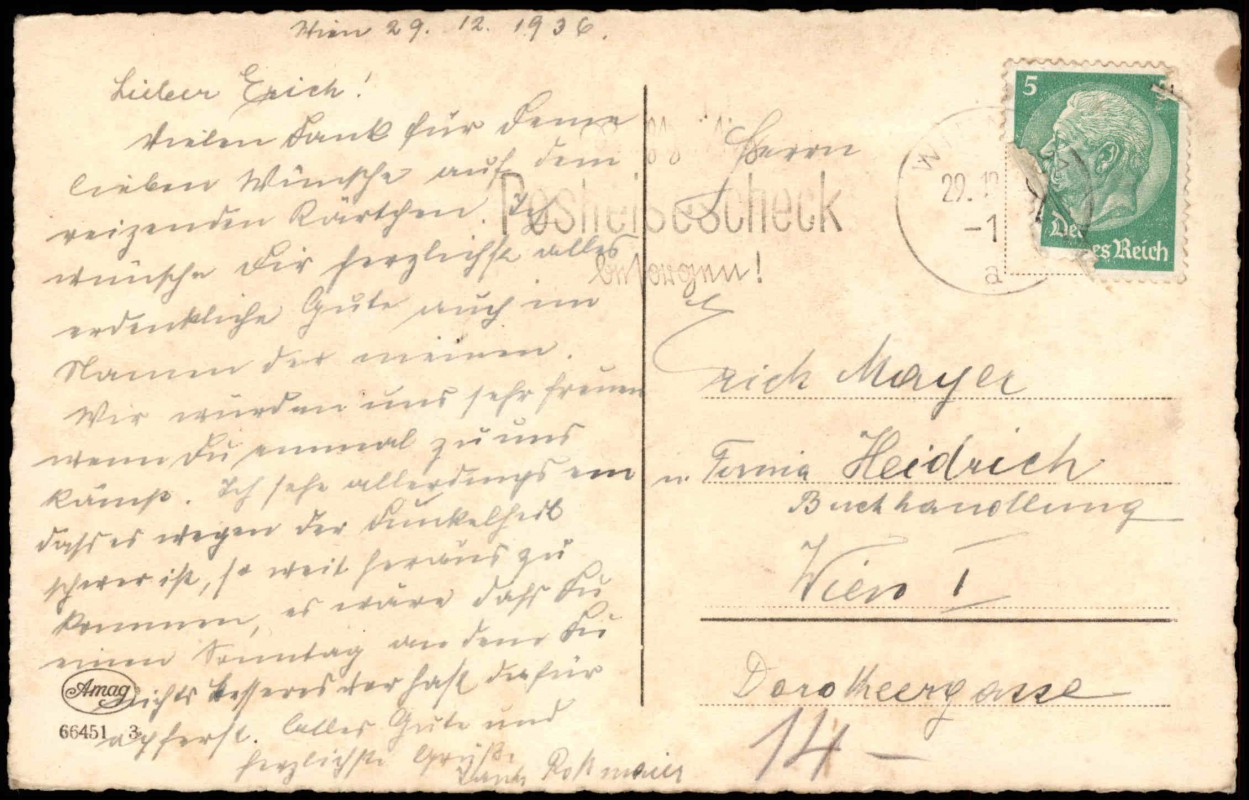 Wien 29. 12. 1936.
Lieber Erich!
Vielen Dank für Deine
lieben Wünsche auf dem
reizenden Kärtchen. Ich
wünsche Dir herzlichst alles
erdenkliche Gute auch im
Namen der meinen.
Wir würden uns sehr freuen
wenn Du einmal zu uns
kämst. Ich sehe allerdings ein
dass es wegen der Dunkelheit
schwer ist, so weit heraus zu
kommen, es wäre dass Du
einen Sonntag an dem Du
nichts besseres vor hast dafür
opferst. Alles Gute und
herzlichste Grüße
Rossmaier
Amag
66451 3
5 5
Deutsches Reich
WIEN
29. 12
-1
a
Postreisescheck
besorgen!
Herrn
Erich Mayer
Firma Heidrich
Buchhandlung
Wien I
Dorotheergasse
14 -